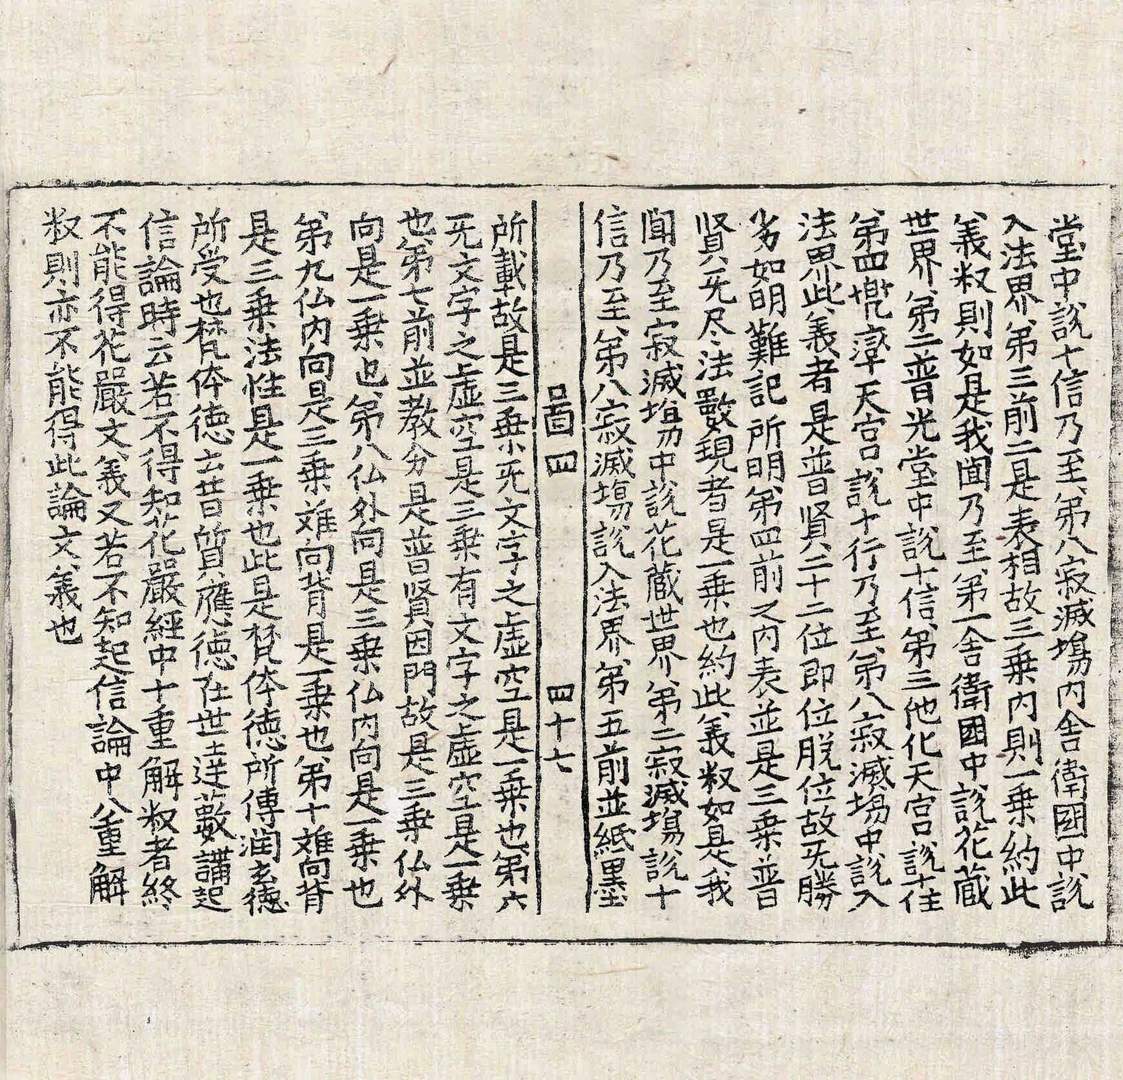 堂中說十信乃至第八寂滅場内舍衛國中說
入法界第三前二是表相故三乗内則一乗約此
義叙則如是我聞乃至第一舍衛國中說花蔵
世界第二普光堂中說十信第三他化天宮說十住
第四兠率天宮說十行乃至第八寂滅場中說入
法界此義者是普賢六二十二位即位脱位故旡勝
劣如明難記所明第四前之内表並是三乗普
賢旡尽法數現者是一乗也約此義叙如是我
聞乃至寂滅場中說花蔵世界第二寂滅場說十
信乃至第八寂滅場說入法界第五前並紙墨
啚四 四十七
所載故是三乗旡文字之虚空是一乗也第六
旡文字之虚空是三乗有文字之虚空是一乗
也第七前並教分是普賢因門故是三乗仏外
向是一乗也第八仏外向是三乗仏内向是一乗也
第九仏内向是三乗難向背是一乗也第十難向背
是三乗法性是一乗也此是梵体德所傳润玄德
所受也梵体德云昔質應德在世達數講起
信論時云若不得知花嚴經中十重解叙者終
不能得花嚴文義又若不知起信論中八重解
叙則亦不能得此論文義也